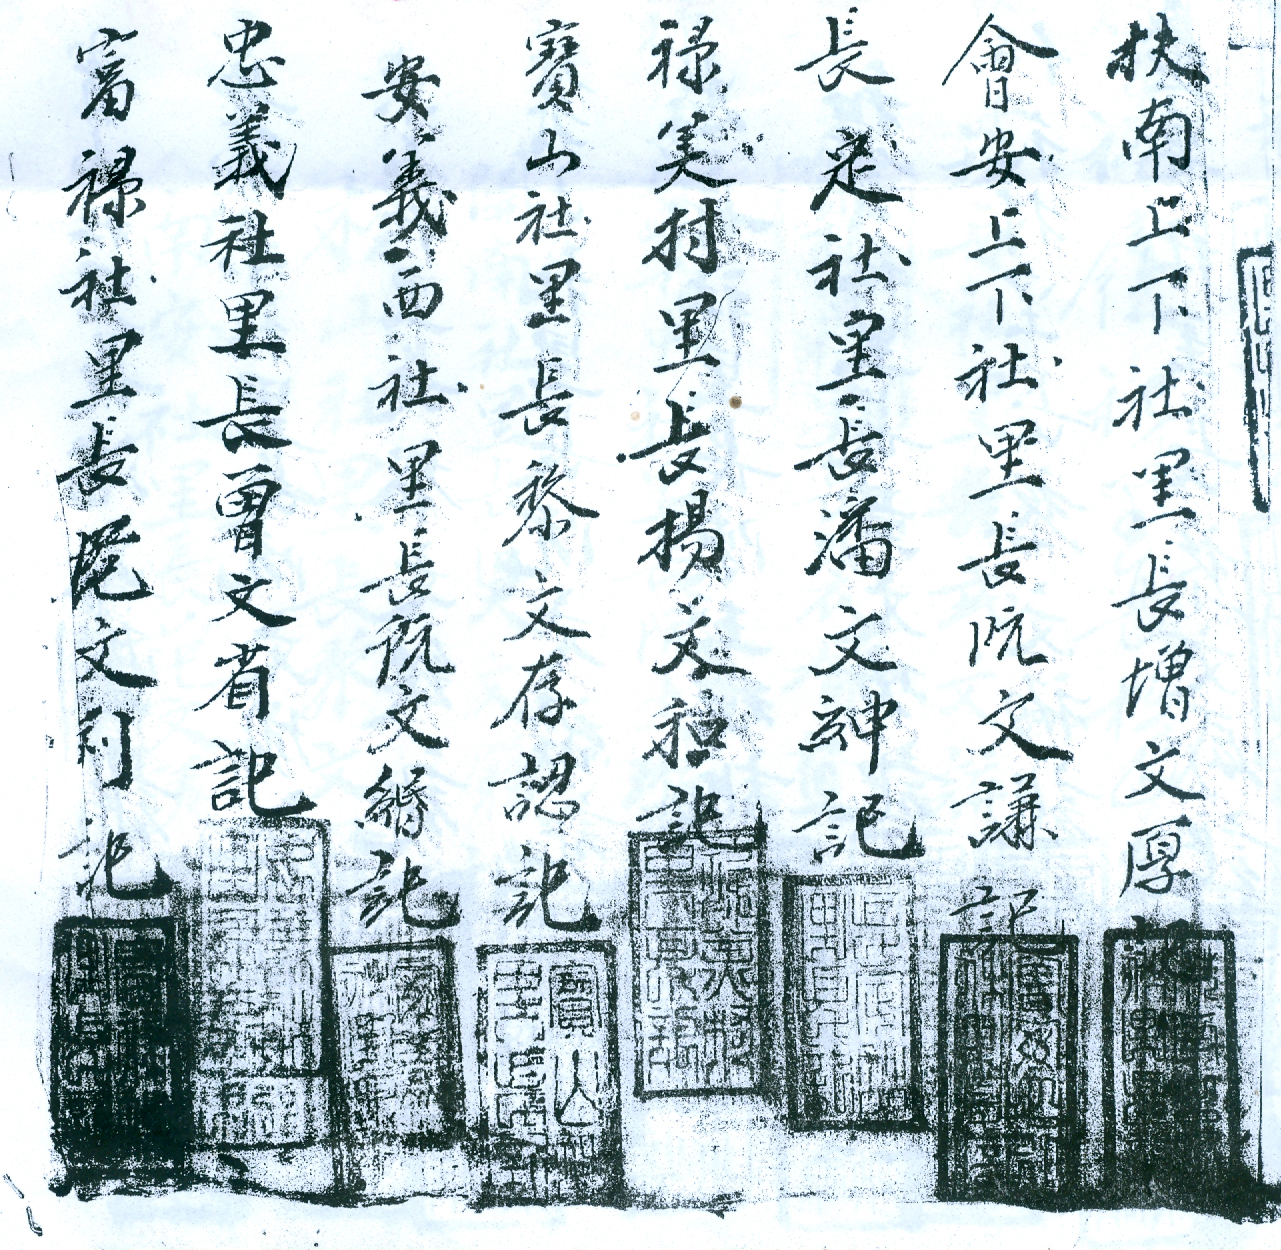 扶南上下社里長增文厚記
會安上下社里長阮文謙記
長定社里長潘文紳記
祿美村里長楊文稔記
寶山社里長黎文存認記
安義西社里長阮文縉記
忠義社里長曾文省記
富祿社里長阮文利記
寶山社里長